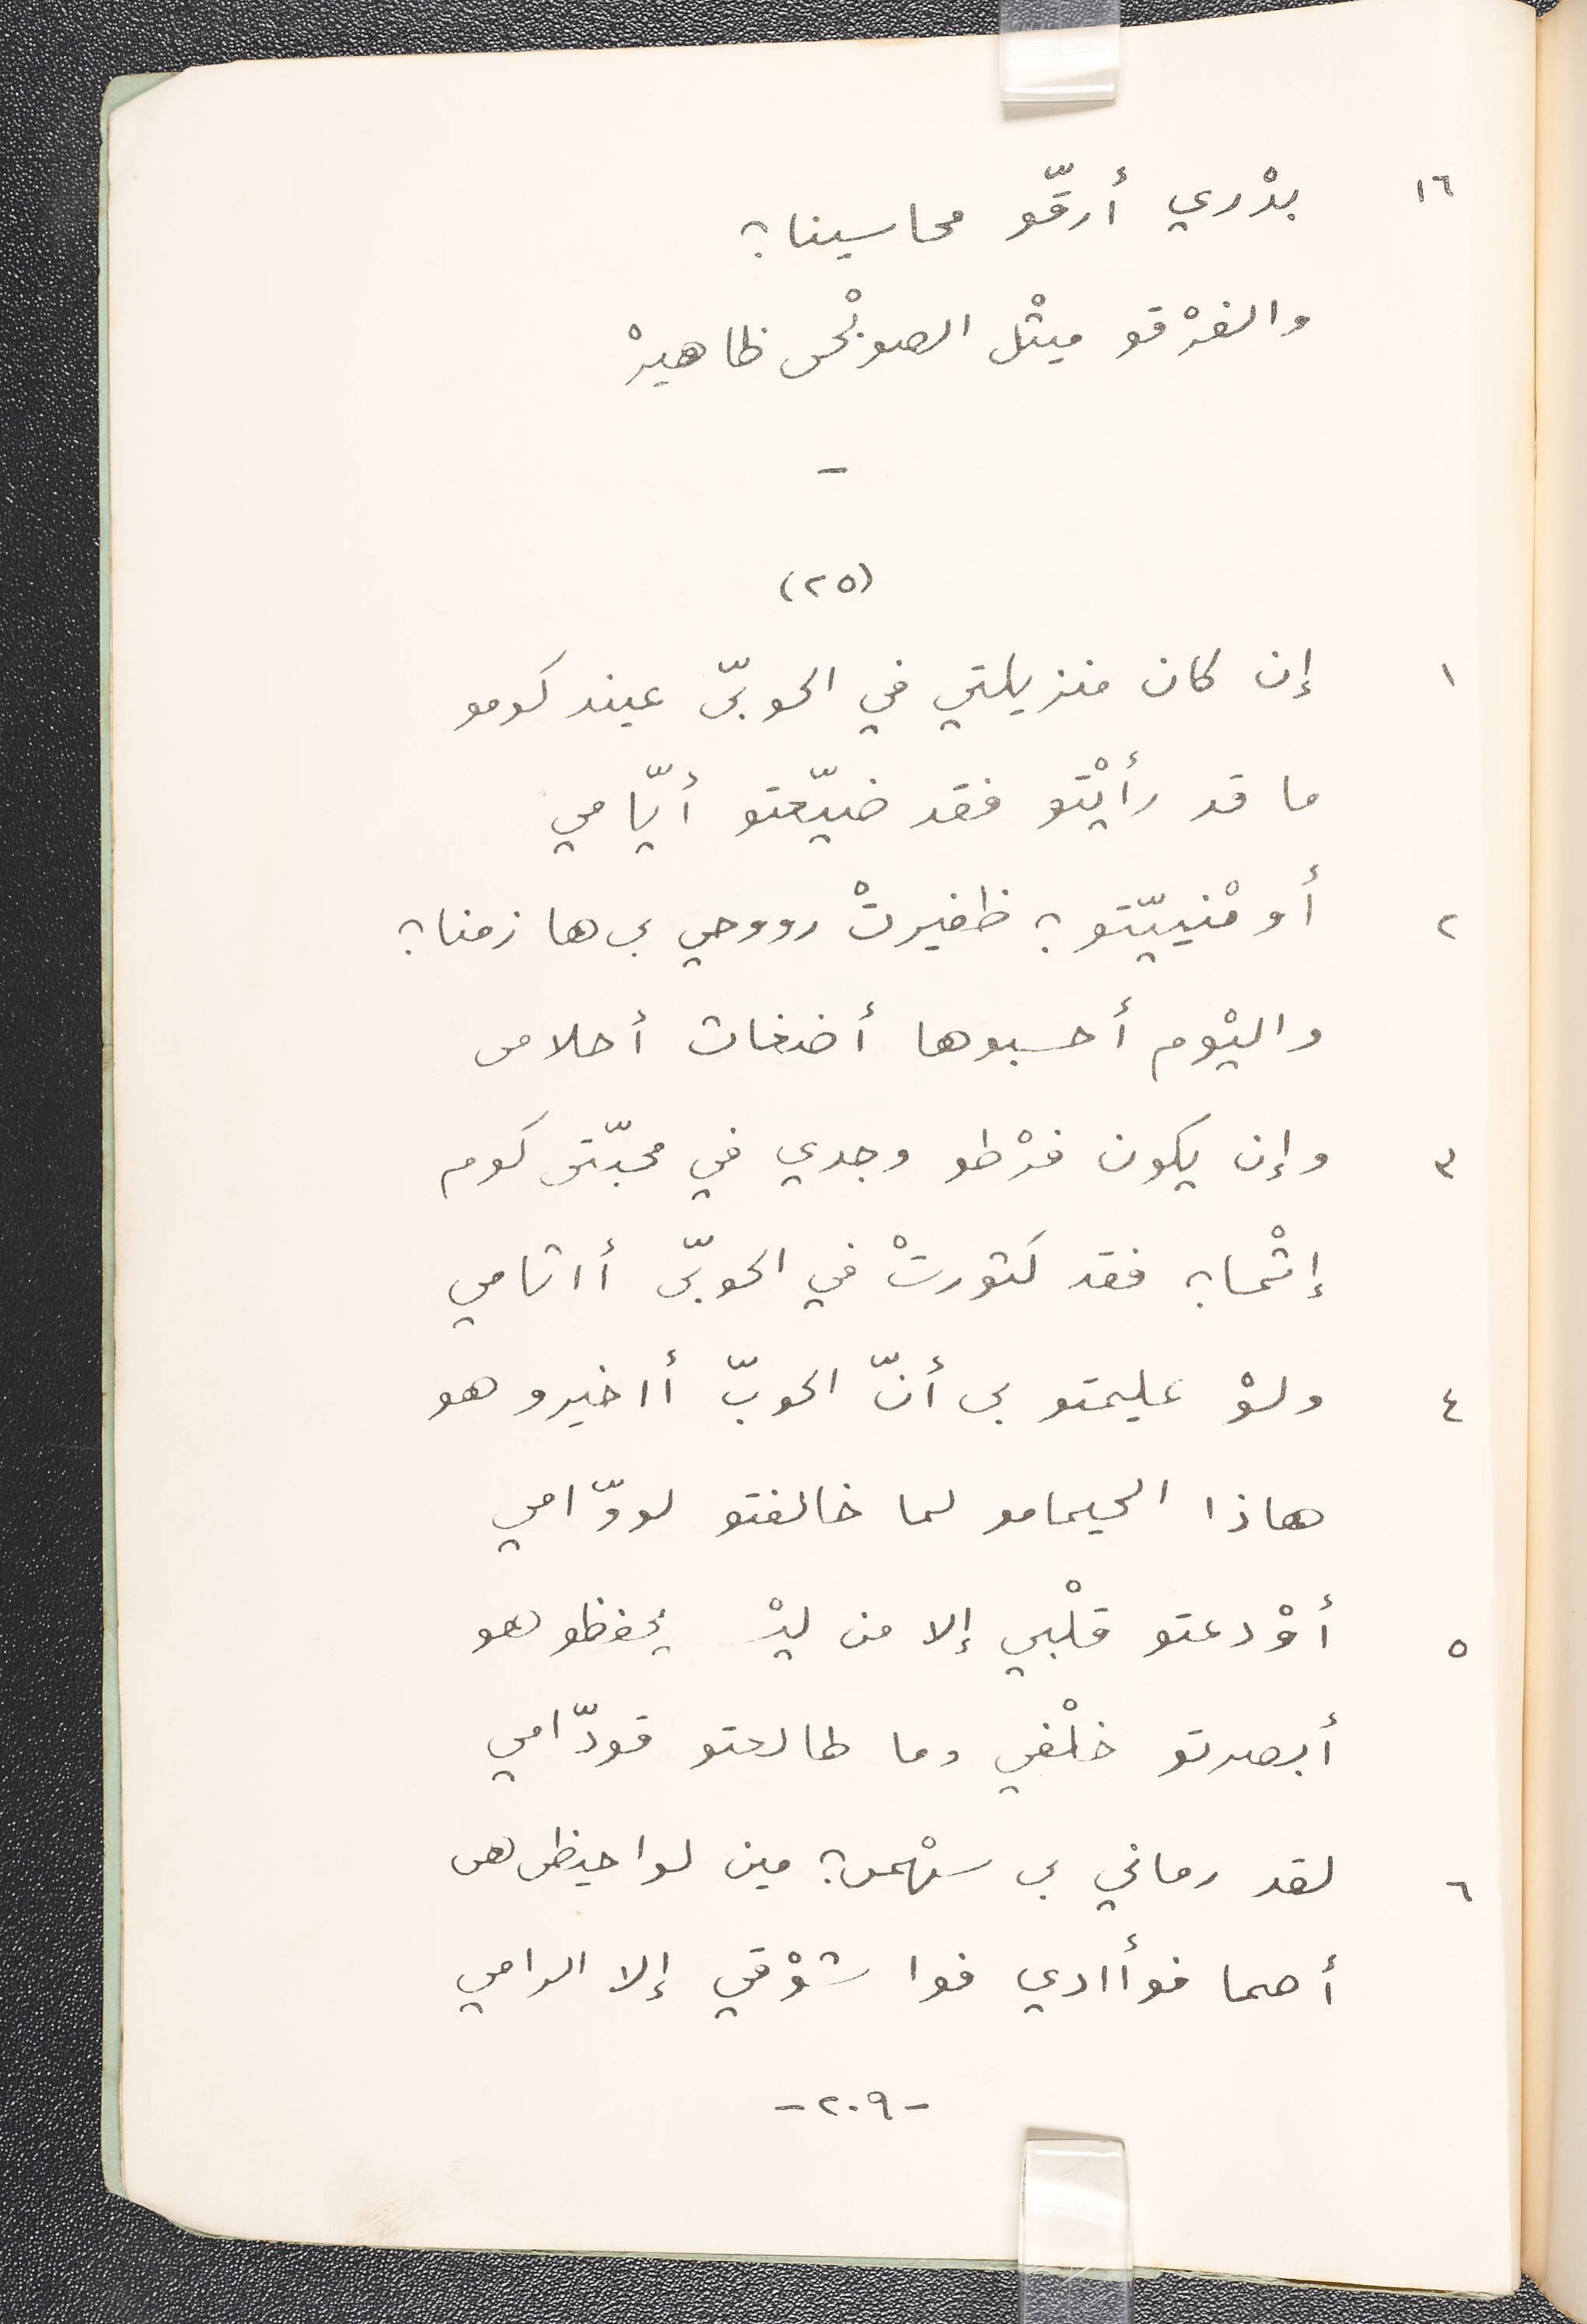 ١٦ بدْري أرقّو محاسينا؟
والفرْقو ميثْل الصوبْحى ظاهيرْ
–
(٢٥)
١ إن كان منزيلتي في الحوبّى عيند كومو
ما قد رأيْتو فقد ضيّعتو أيّامي
٢ أومْنييّتو؟ ظفيرتْ رووحي بى ها زمنا؟
واليْوم أحسبوها أضغاث أحلامى
٣ وإن يكون فرْطو وجدي في محبّتى كوم
إثْما؟ فقد كثورتْ في الحوبّى أاثامي
٤ ولوْ عليمتو بى أنّ الحوبّ أاخيرو هو
هاذا الحيمامو لما خالفتو لووّامي
٥ أوْدعتو قلْبي إلا من ليْـ يحفظو هو
أبصرتو خلْفي وما طالعتو قودّامي
٦ لقد رماني بى سهْمى؟ مين لواحيظى هى
أصما فوأادي فوا شوْقي إلا الرامي
-٢٠٩-